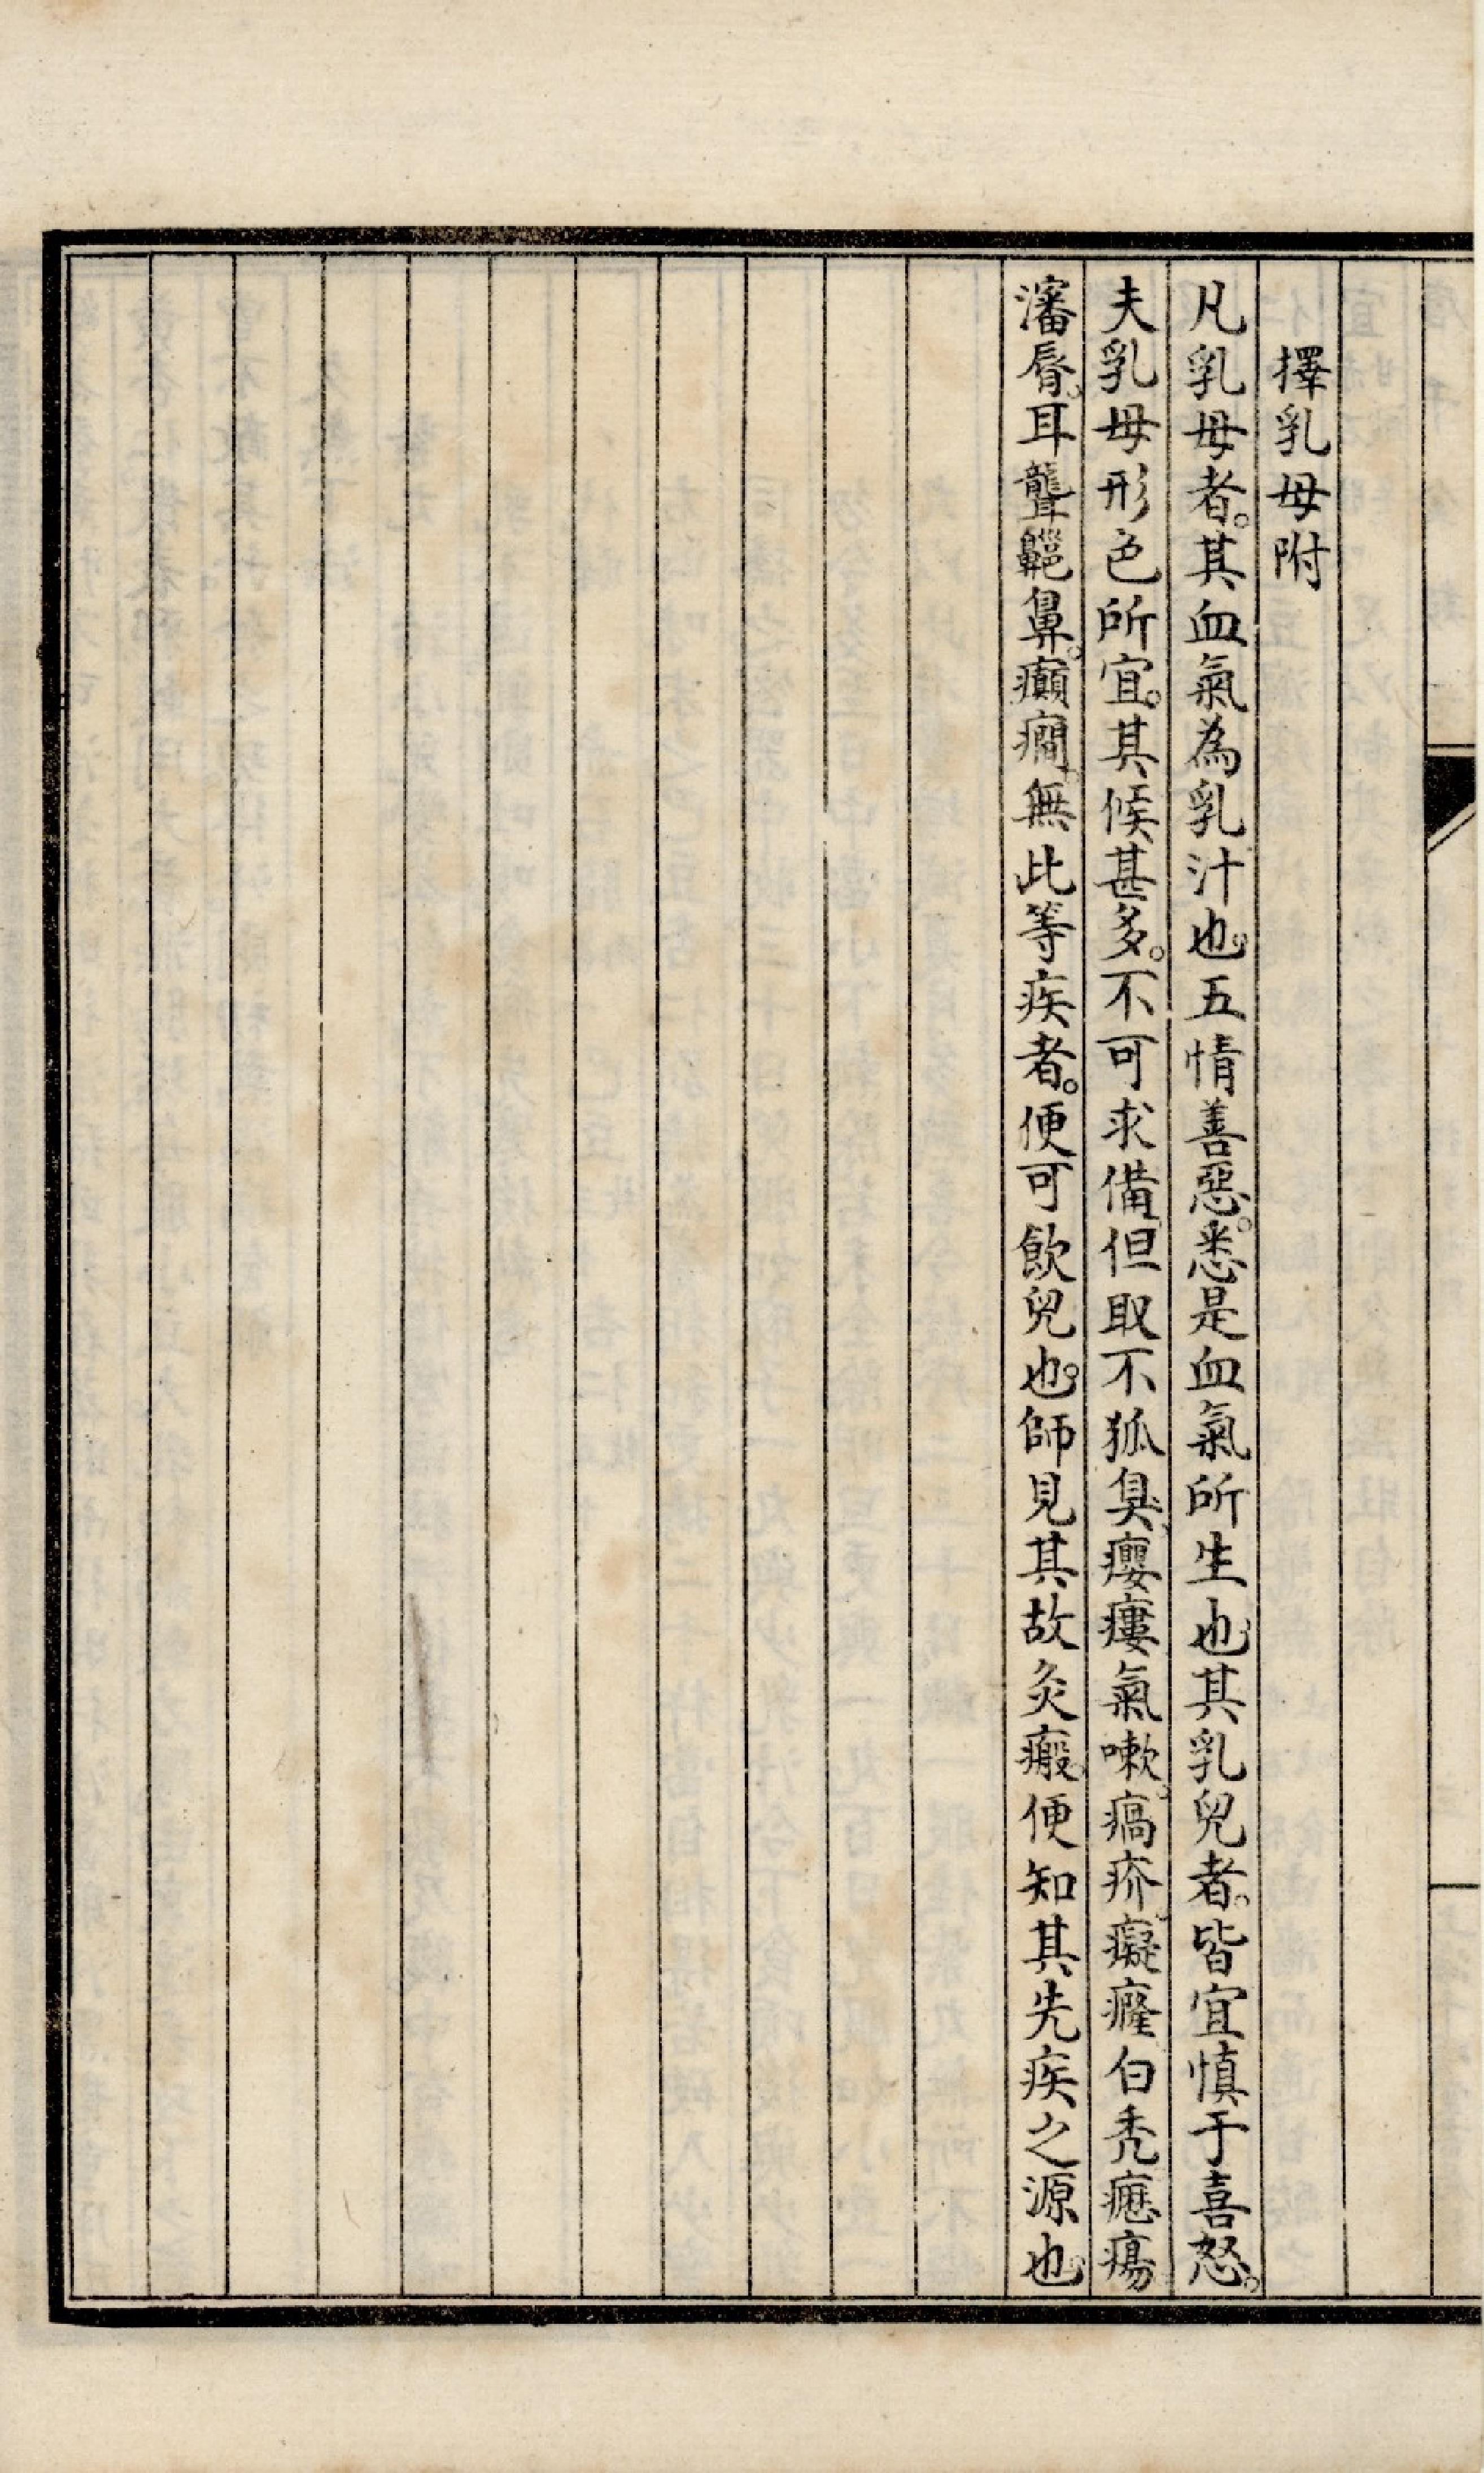 擇乳母附
凡乳母者。其血氣為乳汁也。五情善惡。悉是血氣所生也。其乳兒者。皆宜慎于喜怒。
夫乳母形色所宜。其候甚多。不可求備。但取不狐臭、癭瘻、氣嗽、瘑疥、癡癃、白秃、癧瘍、
瀋脣。耳聾、齆鼻。癲癇。無此等疾者。便可飲兒也。師見其故灸瘢。便知其先疾之源也。